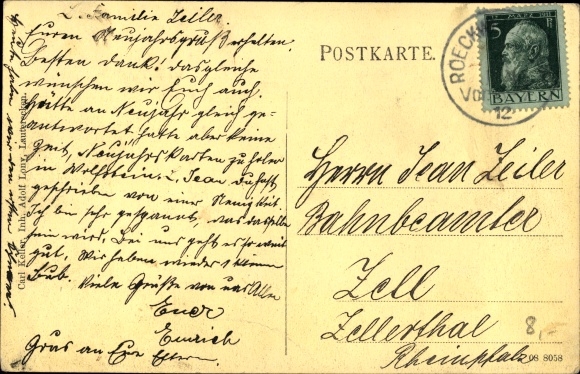 L. Familie Zeiler.
Euren Neujahrsgruß erhalten.
Besten Dank! Dasgleiche
wünschen wir Euch auch.
Hätte an Neujahr gleich ge-
antwortet hatte aber keine
Zeit, Neujahrskarten zu holen
in Wolfstein. L. Jean Du hast
geschrieben von einer Neuigkeit.
Ich bin sehr gespannt, was dasselbe
sein wird. Bei uns geht es so weit
gut. Wir haben wieder 1 kleinen
Bub. Viele Grüße von uns Allen
Euer
Emrich
Grus an Eure Eltern.
Carl Keller, Inh. Adolf Louy, Lauterecken
POSTKARTE.
ROECK
12
5
BAYERN
Herrn Jean Zeiler
Bahnbeamter
Zell
Zellerthal
Rheinpfalz
8,-
08 8058